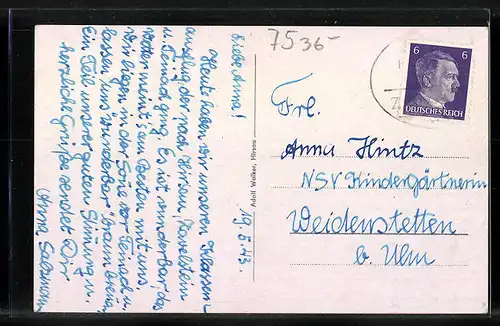 7536-
6 6
DEUTSCHES REICH
Frl.
Anna Hintz
NSV Kindergärtnerin
Weidenstetten
b. Ulm
Adolf Walker, Hirsau
19. 5. 43.
Liebe Anna!
Heute haben wir unseren Klassen-
ausflug der nach Hirsau, Zavelstein
u. Teinach ging. Es ist wunderbar, das
Wetter meint's am besten mit uns,
wir liegen in der Sonne vor Teinach u.
lassen uns wunderbar braun brennen.
Ein Teil unserer guten Stimmung u.
herzliche Grüße sendet Dir
Anna